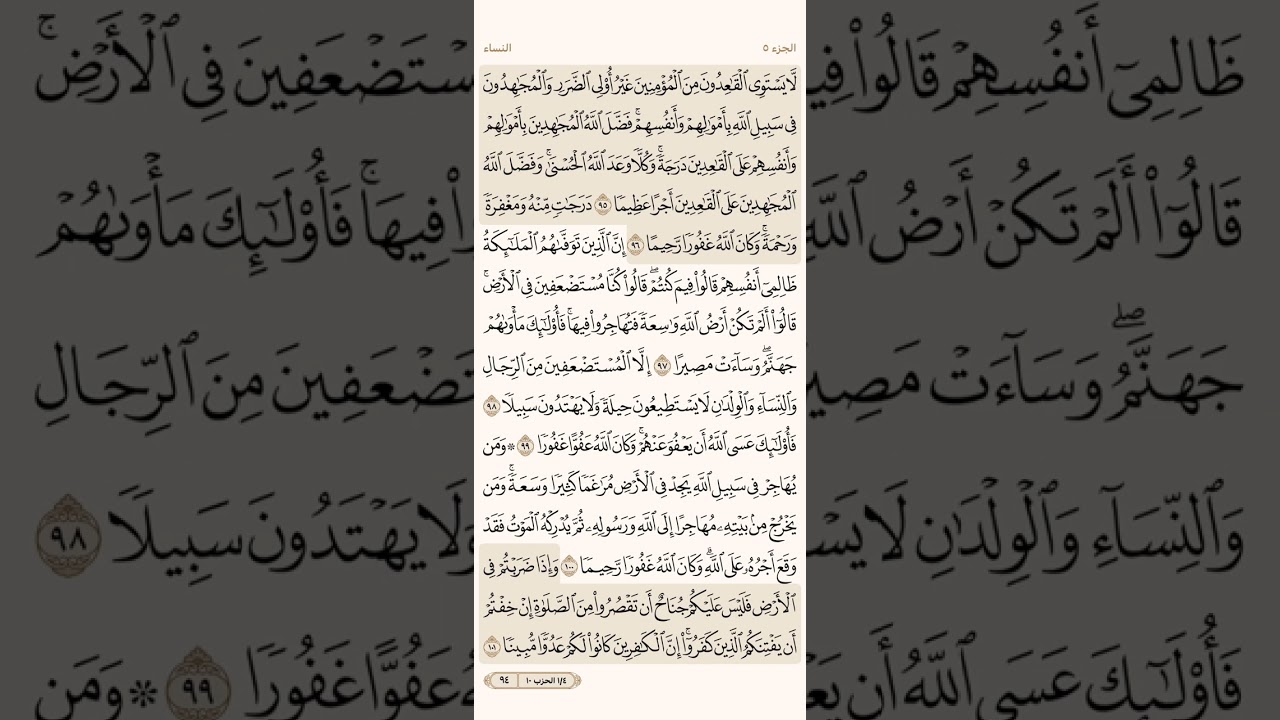 الجزء ٥ النساء
لَّا يَسْتَوِى ٱلْقَـٰعِدُونَ مِنَ ٱلْمُؤْمِنِينَ غَيْرُ أُو۟لِى ٱلضَّرَرِ وَٱلْمُجَـٰهِدُونَ
فِى سَبِيلِ ٱللَّهِ بِأَمْوَٰلِهِمْ وَأَنفُسِهِمْ ۚ فَضَّلَ ٱللَّهُ ٱلْمُجَـٰهِدِينَ بِأَمْوَٰلِهِمْ
وَأَنفُسِهِمْ عَلَى ٱلْقَـٰعِدِينَ دَرَجَةً ۚ وَكُلًّا وَعَدَ ٱللَّهُ ٱلْحُسْنَىٰ ۚ وَفَضَّلَ ٱللَّهُ
ٱلْمُجَـٰهِدِينَ عَلَى ٱلْقَـٰعِدِينَ أَجْرًا عَظِيمًا ٩٥ دَرَجَـٰتٍ مِّنْهُ وَمَغْفِرَةً
وَرَحْمَةً ۚ وَكَانَ ٱللَّهُ غَفُورًا رَّحِيمًا ٩٦ إِنَّ ٱلَّذِينَ تَوَفَّىٰهُمُ ٱلْمَلَـٰٓئِكَةُ
ظَالِمِىٓ أَنفُسِهِمْ قَالُوا۟ فِيمَ كُنتُمْ ۖ قَالُوا۟ كُنَّا مُسْتَضْعَفِينَ فِى ٱلْأَرْضِ ۚ
قَالُوٓا۟ أَلَمْ تَكُنْ أَرْضُ ٱللَّهِ وَٰسِعَةً فَتُهَاجِرُوا۟ فِيهَا ۚ فَأُو۟لَـٰٓئِكَ مَأْوَىٰهُمْ
جَهَنَّمُ ۖ وَسَآءَتْ مَصِيرًا ٩٧ إِلَّا ٱلْمُسْتَضْعَفِينَ مِنَ ٱلرِّجَالِ
وَٱلنِّسَآءِ وَٱلْوِلْدَٰنِ لَا يَسْتَطِيعُونَ حِيلَةً وَلَا يَهْتَدُونَ سَبِيلًا ٩٨
فَأُو۟لَـٰٓئِكَ عَسَى ٱللَّهُ أَن يَعْفُوَ عَنْهُمْ ۚ وَكَانَ ٱللَّهُ عَفُوًّا غَفُورًا ٩٩ ۞ وَمَن
يُهَاجِرْ فِى سَبِيلِ ٱللَّهِ يَجِدْ فِى ٱلْأَرْضِ مُرَٰغَمًا كَثِيرًا وَسَعَةً ۚ وَمَن
يَخْرُجْ مِنۢ بَيْتِهِۦ مُهَاجِرًا إِلَى ٱللَّهِ وَرَسُولِهِۦ ثُمَّ يُدْرِكْهُ ٱلْمَوْتُ فَقَدْ
وَقَعَ أَجْرُهُۥ عَلَى ٱللَّهِ ۗ وَكَانَ ٱللَّهُ غَفُورًا رَّحِيمًا ١٠٠ وَإِذَا ضَرَبْتُمْ فِى
ٱلْأَرْضِ فَلَيْسَ عَلَيْكُمْ جُنَاحٌ أَن تَقْصُرُوا۟ مِنَ ٱلصَّلَوٰةِ إِنْ خِفْتُمْ
أَن يَفْتِنَكُمُ ٱلَّذِينَ كَفَرُوٓا۟ ۚ إِنَّ ٱلْكَـٰفِرِينَ كَانُوا۟ لَكُمْ عَدُوًّا مُّبِينًا ١٠١
١/٤ الحزب ١٠ ٩٤